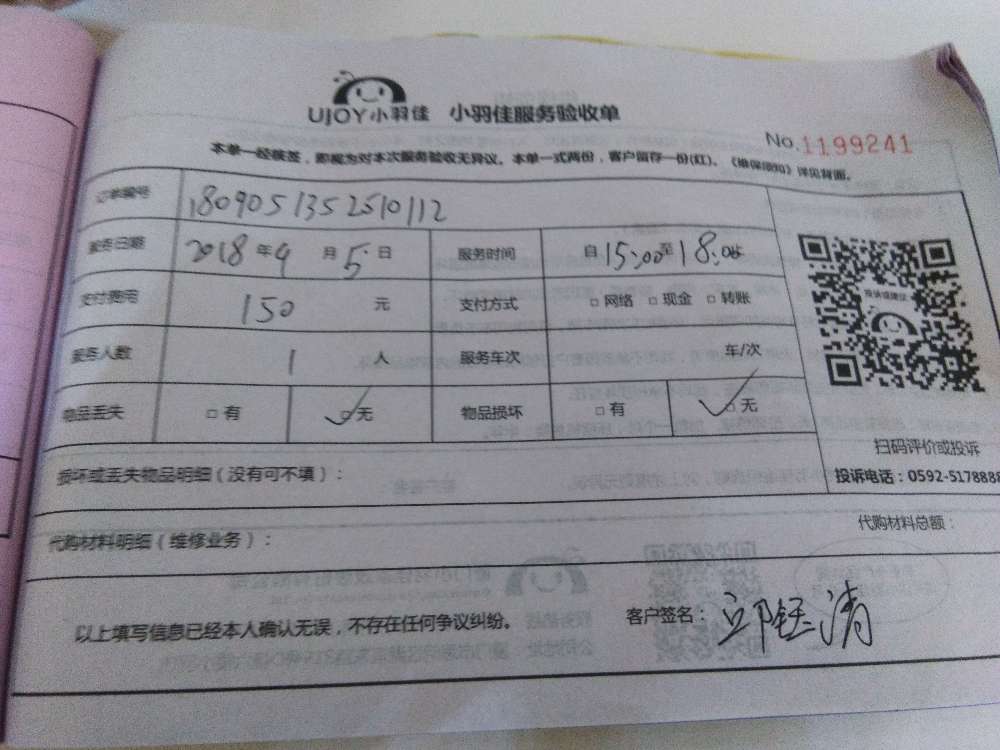 UJOY小羽佳 小羽佳服务验收单
No.1199241
本单一经核签，即视为对本次服务验收无异议。本单一式两份，客户留存一份(红)。《维保须知》详见背面。
订单编号 1809051352510112
服务日期 2018年9月5日 服务时间 自15:00至18:00
支付费用 150 元 支付方式 □网络 □现金 □转账
服务人数 1 人 服务车次 车/次
物品丢失 □有 ☑无 物品损坏 □有 ☑无
扫码评价或投诉
损坏或丢失物品明细（没有可不填）：
投诉电话：0592-5178888
代购材料总额：
代购材料明细（维修业务）：
以上填写信息已经本人确认无误，不存在任何争议纠纷。 客户签名：邱钰清